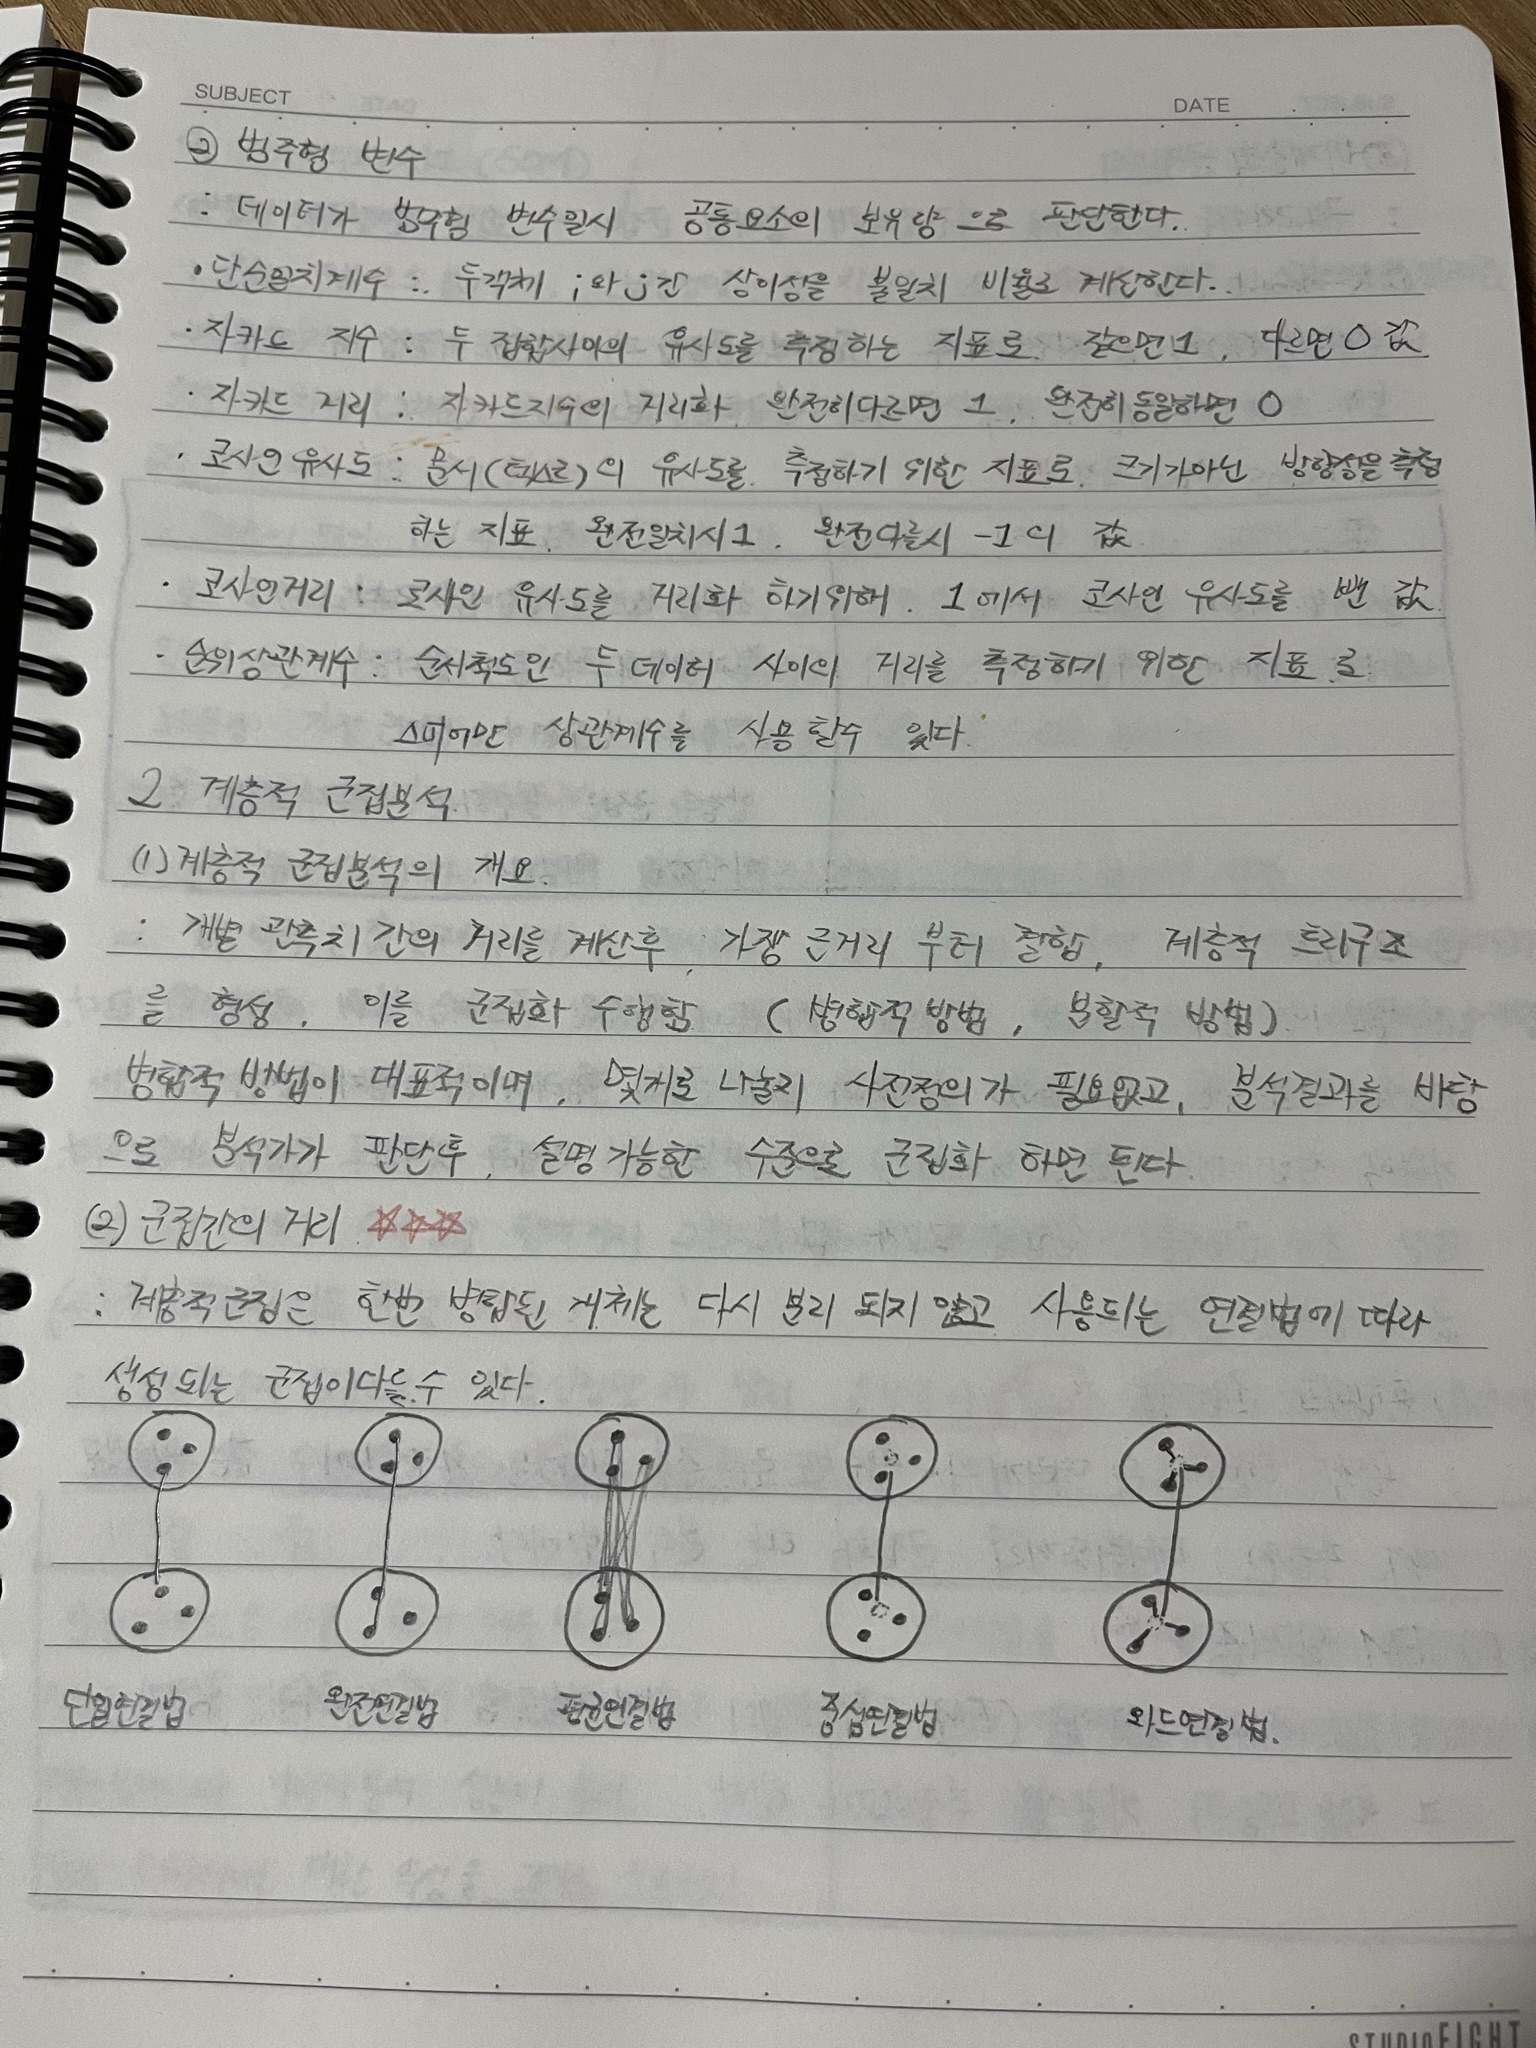 SUBJECT
DATE
② 범주형 변수
: 데이터가 범주형 변수일시 공통요소의 보유량으로 판단한다.
• 단순일치계수 : 두객체 i와 j간 상이성을 불일치 비율로 계산한다.
· 자카드 지수 : 두 집합사이의 유사도를 측정하는 지표로 같으면 1, 다르면 0 값
· 자카드 거리 : 자카드지수의 거리화 완전히다르면 1, 완전히동일하면 0
· 코사인유사도 : 문서(텍스트)의 유사도를 측정하기 위한 지표로 크기가아닌 방향성을 측정
하는 지표. 완전일치시1, 완전다를시 -1의 값
· 코사인거리 : 코사인 유사도를 거리화 하기위해, 1에서 코사인 유사도를 뺀 값
· 순위상관계수 : 순서척도인 두 데이터 사이의 거리를 측정하기 위한 지표로
스피어만 상관계수를 사용할수 있다.
2 계층적 군집분석.
(1) 계층적 군집분석의 개요.
: 개별 관측치 간의 거리를 계산후, 가장 근거리 부터 결합, 계층적 트리구조
를 형성, 이를 군집화 수행함 (병합적방법, 분할적 방법)
병합적 방법이 대표적이며, 몇개로 나눌지 사전정의가 필요없고, 분석결과를 바탕
으로 분석가가 판단후, 설명가능한 수준으로 군집화 하면 된다.
(2) 군집간의 거리 ☆☆☆
: 계층적군집은 한번 병합된 개체는 다시 분리 되지 않고 사용되는 연결법에 따라
생성되는 군집이다를수 있다.
단일연결법 완전연결법 평균연결법 중심연결법 와드연결법.
STUDIO EIGHT